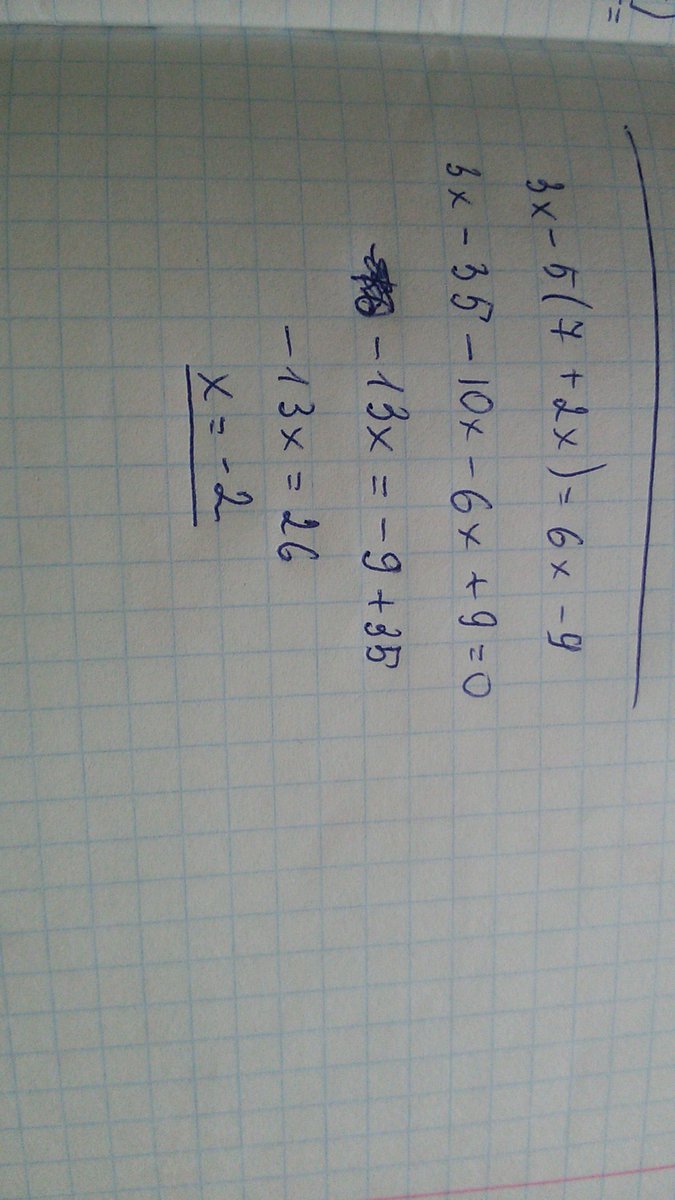 3x - 5(7 + 2x) = 6x - 9
3x - 35 - 10x - 6x + 9 = 0
- 13x = - 9 + 35
- 13x = 26
x = - 2